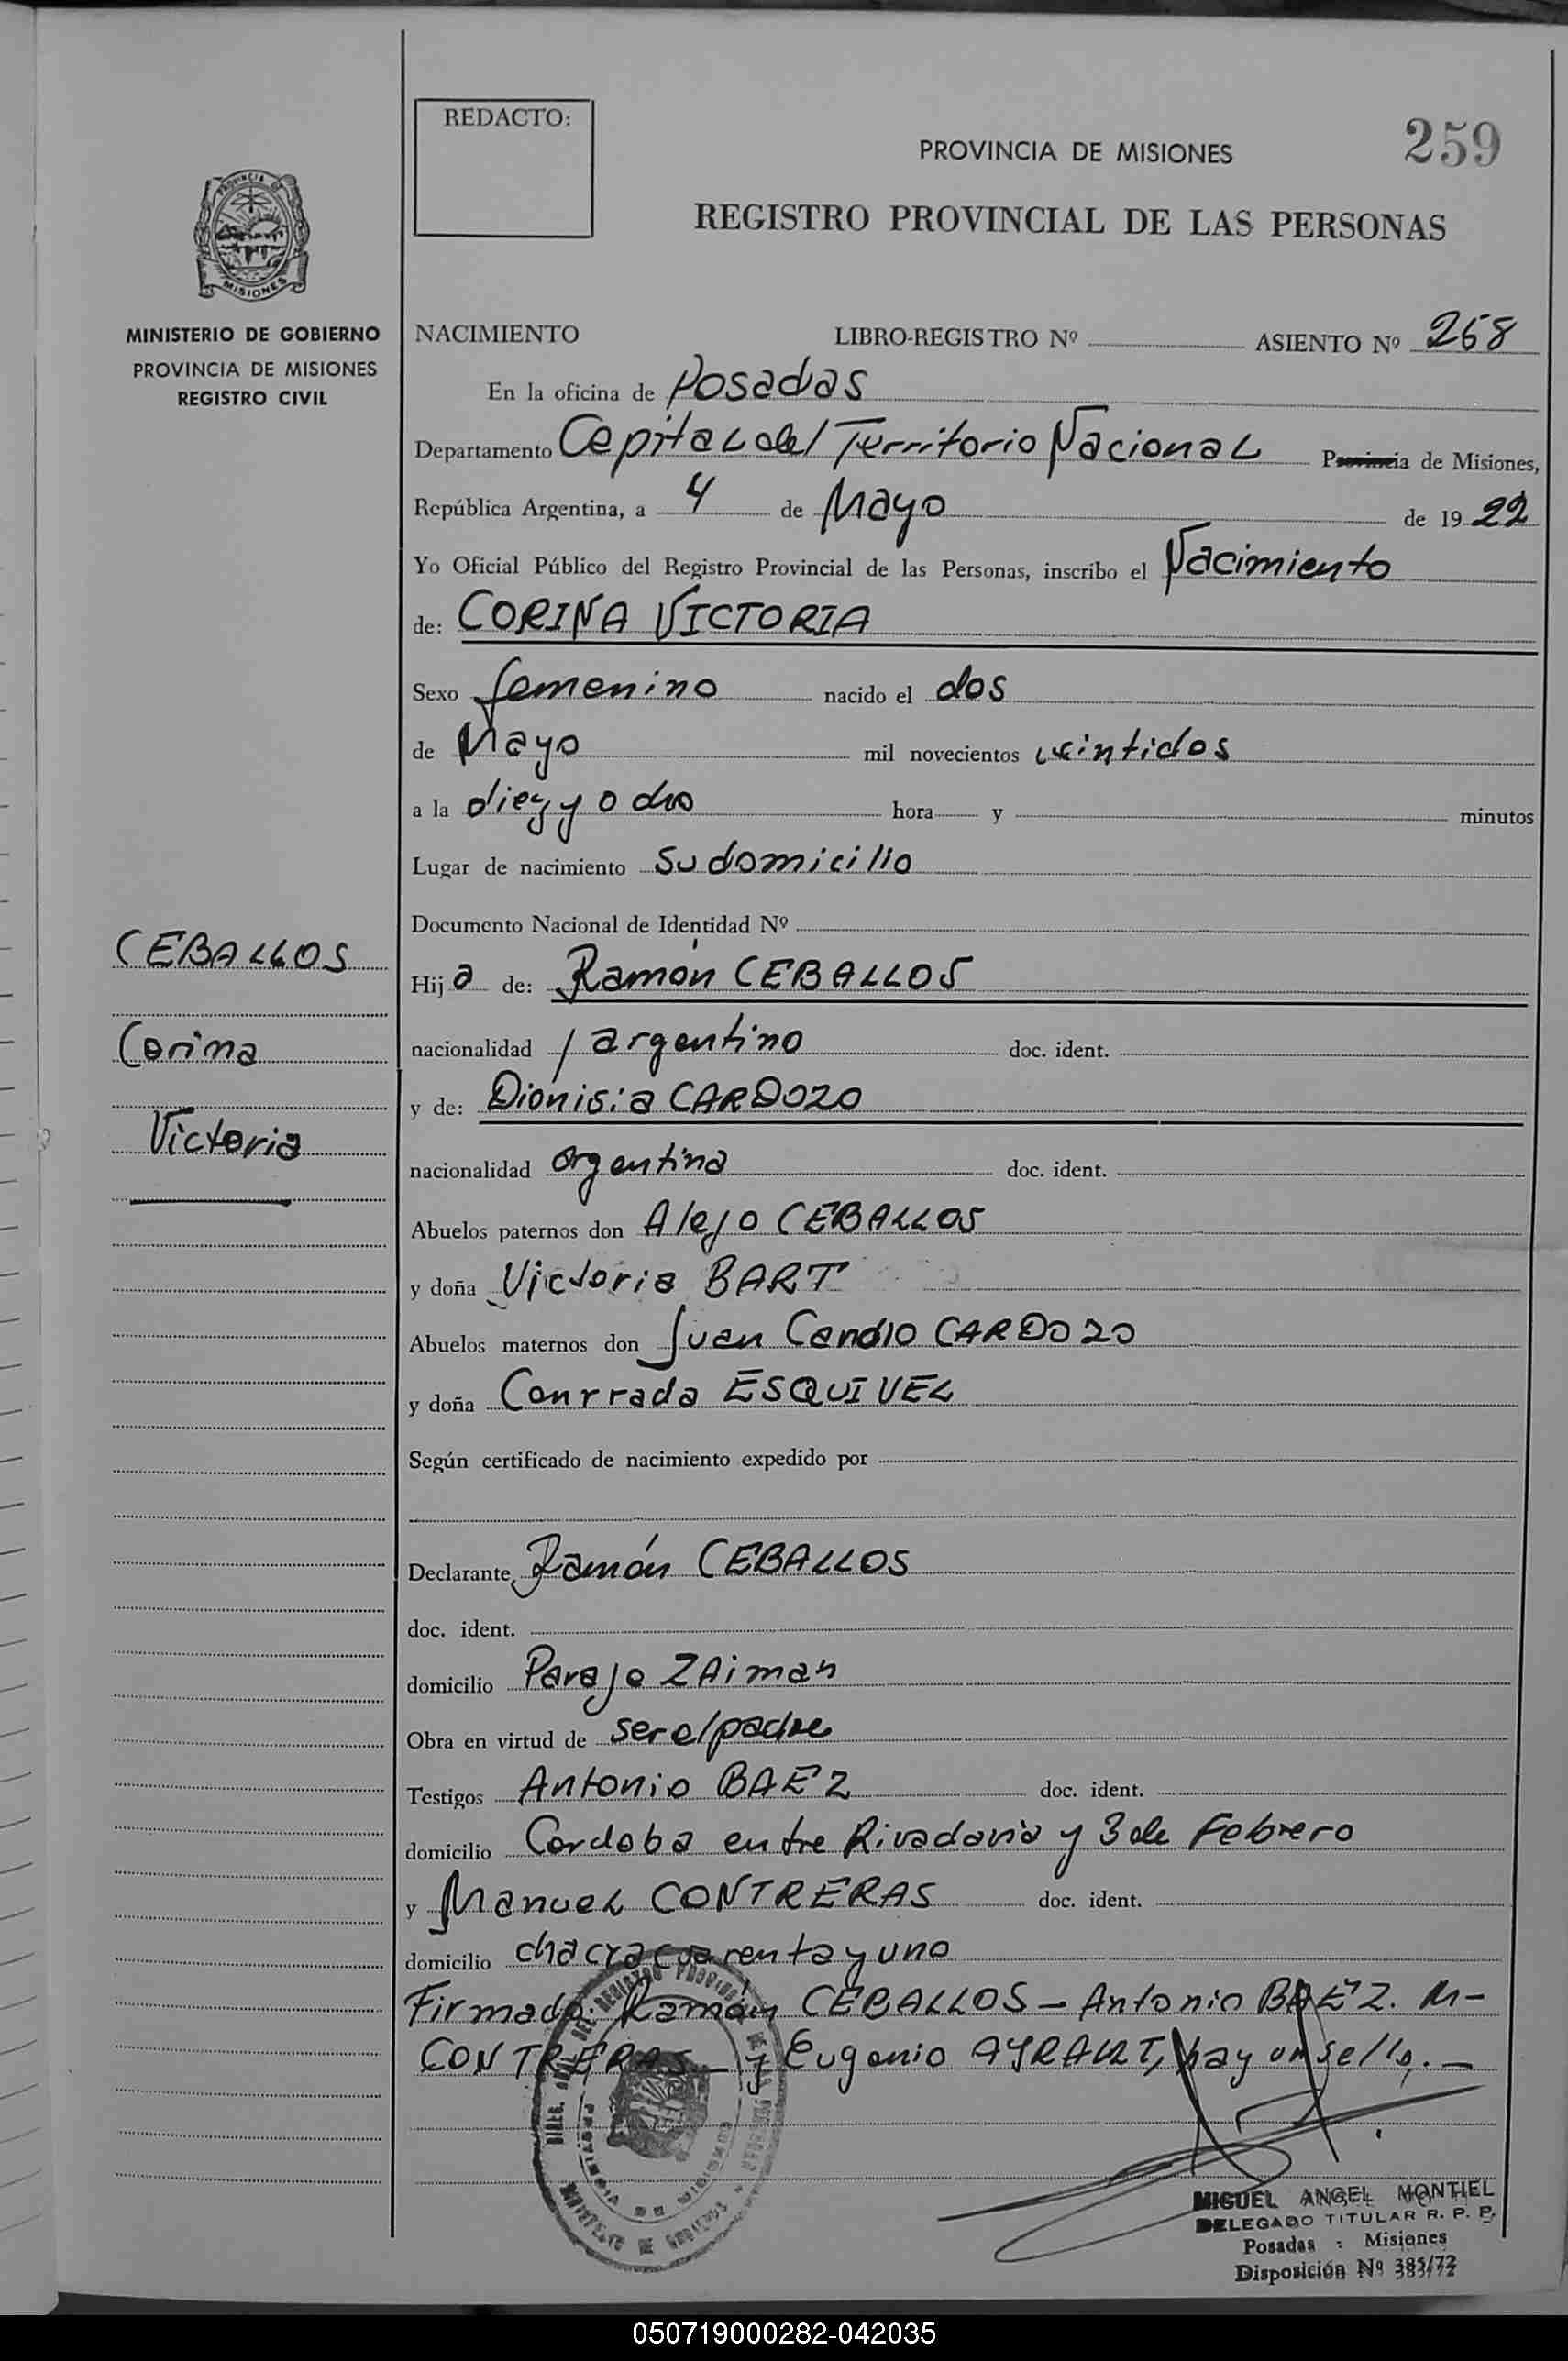 REDACTO:
PROVINCIA DE MISIONES
259
REGISTRO PROVINCIAL DE LAS PERSONAS
PROVINCIA DE
MISIONES
MINISTERIO DE GOBIERNO
PROVINCIA DE MISIONES
REGISTRO CIVIL
NACIMIENTO LIBRO-REGISTRO Nº ASIENTO Nº 268
En la oficina de Posadas
Departamento Capital del Territorio Nacional Provincia de Misiones,
República Argentina, a 4 de Mayo de 1922
Yo Oficial Público del Registro Provincial de las Personas, inscribo el Nacimiento
de: CORINA VICTORIA
Sexo femenino nacido el dos
de Mayo mil novecientos veintidos
a la diez y ocho hora y minutos
Lugar de nacimiento su domicilio
Documento Nacional de Identidad Nº
CEBALLOS
Corina
Victoria
Hija de: Ramón CEBALLOS
nacionalidad argentino doc. ident.
y de: Dionisia CARDOZO
nacionalidad argentina doc. ident.
Abuelos paternos don Alejo CEBALLOS
y doña Victoria BART
Abuelos maternos don Juan Candio CARDOZO
y doña Conrrada ESQUIVEL
Según certificado de nacimiento expedido por
Declarante Ramón CEBALLOS
doc. ident.
domicilio Paraje ZAiman
Obra en virtud de ser el padre
Testigos Antonio BAEZ doc. ident.
domicilio Cordoba entre Rivadavia y 3 de Febrero
y Manuel CONTRERAS doc. ident.
domicilio chacra cuarenta y uno
Firmado: Ramón CEBALLOS - Antonio BAEZ. M-
CONTRERAS - y Eugenio AYRAULT, hay un sello. -
PROVINCIA DE MISIONES
MIGUEL ANGEL MONTIEL
DELEGADO TITULAR R. P. P.
Posadas : Misiones
Disposición Nº 385/72
050719000282-042035